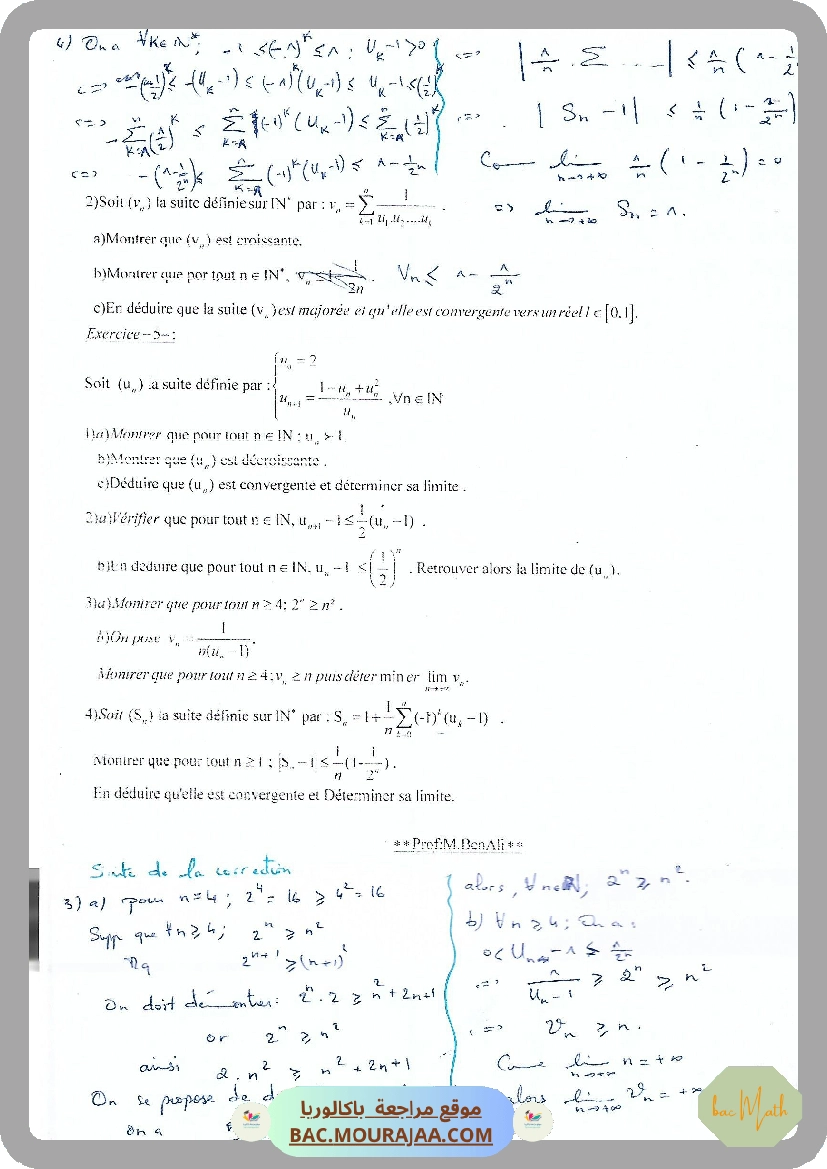 4) On a ∀K∈ℕ*; -1 ≤(-1)^K ≤ 1 ; U_K-1>0
<=> -(1/2)^K ≤ -(U_K-1) ≤ (-1)^K(U_K-1) ≤ U_K-1 ≤ (1/2)^K
<=> -∑_{K=1}^{n}(1/2)^K ≤ ∑_{K=1}^{n}(-1)^K(U_K-1) ≤ ∑_{K=1}^{n}(1/2)^K
<=> -(1-1/2^n) ≤ ∑_{K=1}^{n}(-1)^K(U_K-1) ≤ 1-1/2^n
<=> |1/n . ∑ ... | ≤ 1/n (1-1/2
<=> | Sn-1| ≤ 1/n (1-1/2^n)
lim_{n→+∞} 1/n (1-1/2^n) = 0
=> lim_{n→+∞} Sn = 1.
2)Soit (v_n) la suite définie sur IN* par : v_n = ∑_{k=1}^{n} 1/(u_1.u_2....u_k) .
a)Montrer que (v_n) est croissante.
b)Montrer que por tout n ∈ IN*, Vn ≤ 1 - 1/2^n
c)En déduire que la suite (v_n) est majorée et qu'elle est convergente vers un réel l ∈ [0,1].
Exercice –5– :
Soit (u_n) la suite définie par : { u_0 = 2
u_{n+1} = (1-u_n+u_n²)/u_n ,∀n ∈ IN
1)a)Montrer que pour tout n ∈ IN ; u_n > 1
b)Montrer que (u_n) est décroissante .
c)Déduire que (u_n) est convergente et déterminer sa limite .
2)a)Vérifier que pour tout n ∈ IN, u_{n+1} – 1 ≤ 1/2(u_n –1) .
b)En déduire que pour tout n ∈ IN, u_n – 1 ≤ (1/2)^n . Retrouver alors la limite de (u_n).
3)a)Montrer que pour tout n ≥ 4; 2^n ≥ n² .
b)On pose v_n = 1/(n(u_n –1)).
Montrer que pour tout n ≥ 4 ; v_n ≥ n puis déter min er lim_{n→+∞} v_n.
4)Soit (S_n) la suite définie sur IN* par : S_n = 1+1/n ∑_{k=0}^{n}(-1)^k(u_k –1) .
Montrer que pour tout n ≥ 1 ; |S_n –1| ≤ 1/n(1-1/2^n) .
En déduire qu'elle est convergente et Déterminer sa limite.
**Prof:M.BenAli **
Suite de la correction
3) a) pour n=4 ; 2^4 = 16 ≥ 4² = 16
Supp que ∀n≥4; 2^n ≥ n²
Mq 2^{n+1} ≥ (n+1)²
On doit démontrer: 2^n . 2 ≥ n² + 2n+1
or 2^n ≥ n²
ainsi 2.n² ≥ n² + 2n+1
On se propose de
on a
alors, 2^n ≥ n².
b) ∀n≥4; On a:
0< U_n - 1 ≤ 1/2^n
<=> 1/(U_n-1) ≥ 2^n ≥ n²
<=> Vn ≥ n.
Comme lim_{n→+∞} n = +∞
alors lim_{n→+∞} Vn = +∞
موقع مراجعة باكالوريا
BAC.MOURAJAA.COM
bac Math